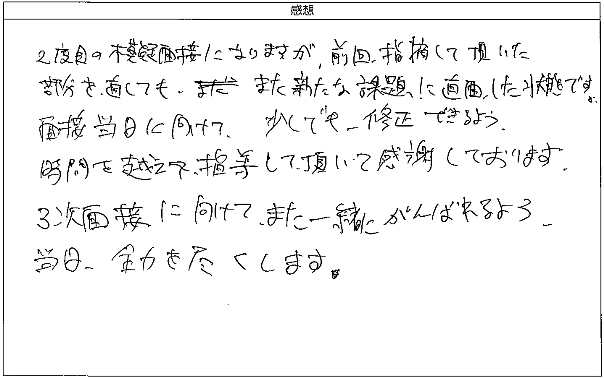 感想
2度目の模擬面接になりますが、前回、指摘して頂いた
部分を直しても、また新たな課題に直面した状態です。
面接当日に向けて、少しでも、修正できるよう、
時間を越えて、指導して頂いて感謝しております。
3次面接に向けて、また一緒にがんばれるよう、
当日、全力を尽くします。